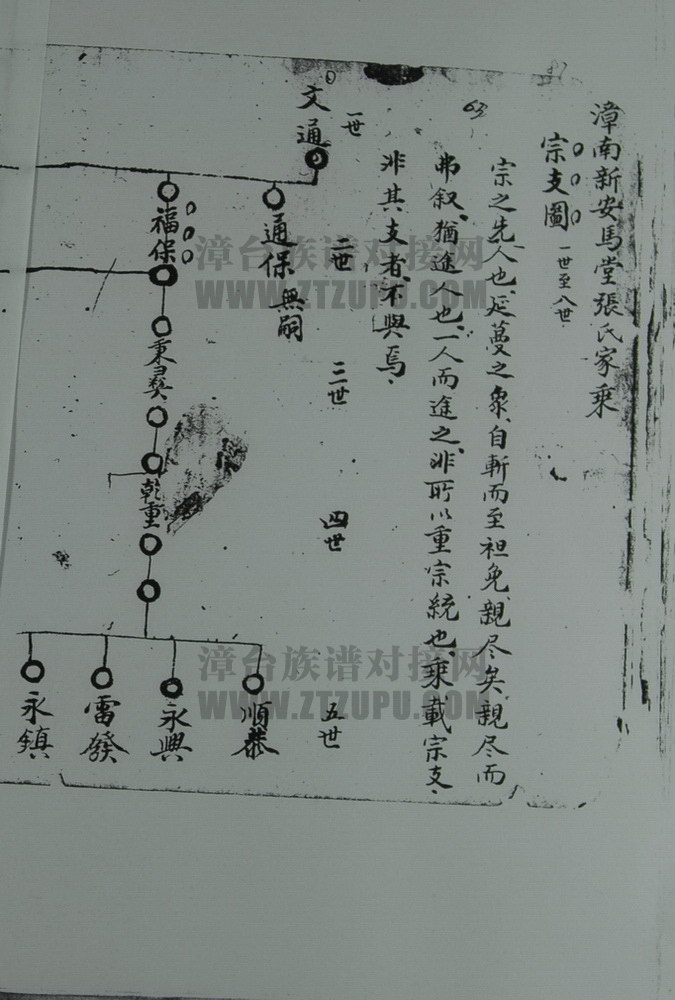 漳南新安馬堂張氏家乘
宗支圖 一世至八世
宗之先人也、延蔓之象、自斬而至袒免、親尽矣、親尽而
弗叙、猶途人也、一人而途之、非所以重宗統也、乘載宗支、
非其支者、不與焉、
63
一世
文通
二世
通保 無嗣
福保
三世
秉彝
四世
乾重
五世
順恭
永興
雷發
永鎮
漳台族谱对接网
WWW.ZTZUPU.COM
漳台族谱对接网
WWW.ZTZUPU.COM